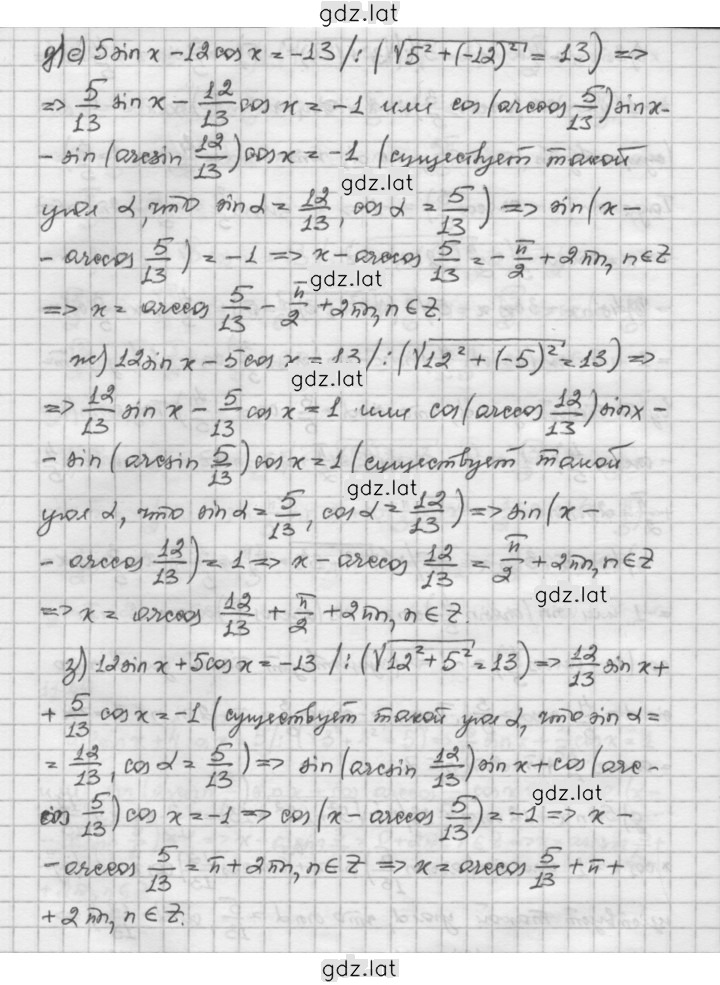 gdz.lat
е) 5sin x − 12cos x = −13 /: (√(5² + (−12)²) = 13) =>
=> 5/13 sin x − 12/13 cos x = −1 или cos(arccos 5/13)sin x −
− sin(arcsin 12/13)cos x = −1 (существует такой
gdz.lat
угол α, что sin α = 12/13, cos α = 5/13) => sin(x −
− arccos 5/13) = −1 => x − arccos 5/13 = −π/2 + 2πn, n∈Z
gdz.lat
=> x = arccos 5/13 − π/2 + 2πn, n∈Z.
ж) 12sin x − 5cos x = 13 /: (√(12² + (−5)²) = 13) =>
gdz.lat
=> 12/13 sin x − 5/13 cos x = 1 или cos(arccos 12/13)sin x −
− sin(arcsin 5/13)cos x = 1 (существует такой
gdz.lat
угол α, что sin α = 5/13, cos α = 12/13) => sin(x −
− arccos 12/13) = 1 => x − arccos 12/13 = π/2 + 2πn, n∈Z
gdz.lat
=> x = arccos 12/13 + π/2 + 2πn, n∈Z.
з) 12sin x + 5cos x = −13 /: (√(12² + 5²) = 13) => 12/13 sin x +
+ 5/13 cos x = −1 (существует такой угол α, что sin α =
= 12/13, cos α = 5/13) => sin(arcsin 12/13)sin x + cos(arc-
gdz.lat
cos 5/13)cos x = −1 => cos(x − arccos 5/13) = −1 => x −
− arccos 5/13 = π + 2πn, n∈Z => x = arccos 5/13 + π +
+ 2πn, n∈Z.
gdz.lat